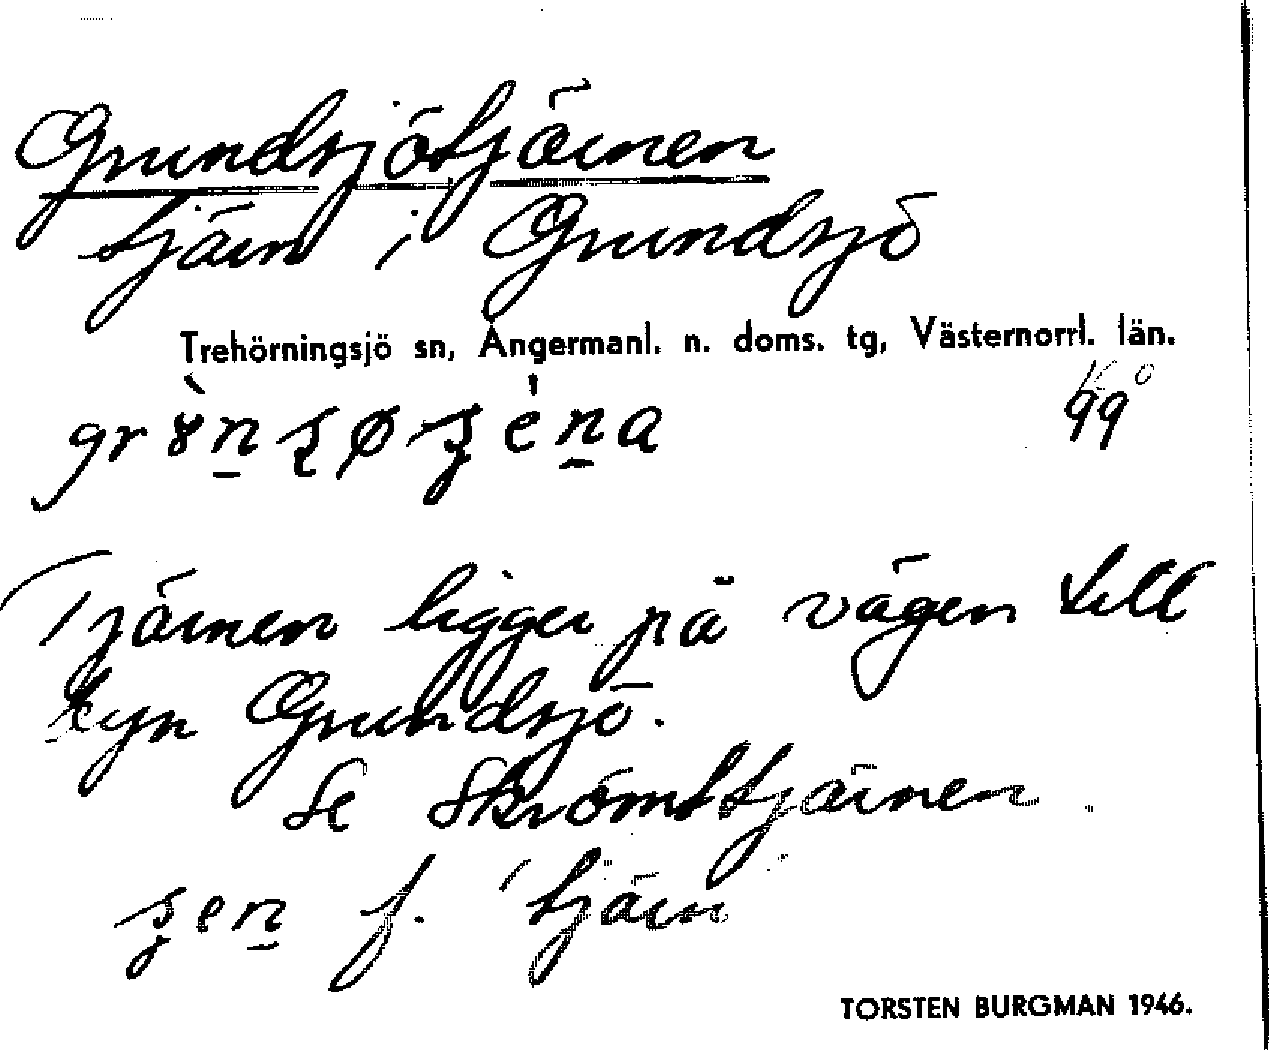 Grundsjötjärnen
tjärn i Grundsjö
Trehörningsjö sn, Ångermanl. n. doms. tg, Västernorrl. län.
Tjärnen ligger på vägen till
byn Grundsjö.
Se Skrömttjärnen.
f. 'tjärn'
TORSTEN BURGMAN 1946.